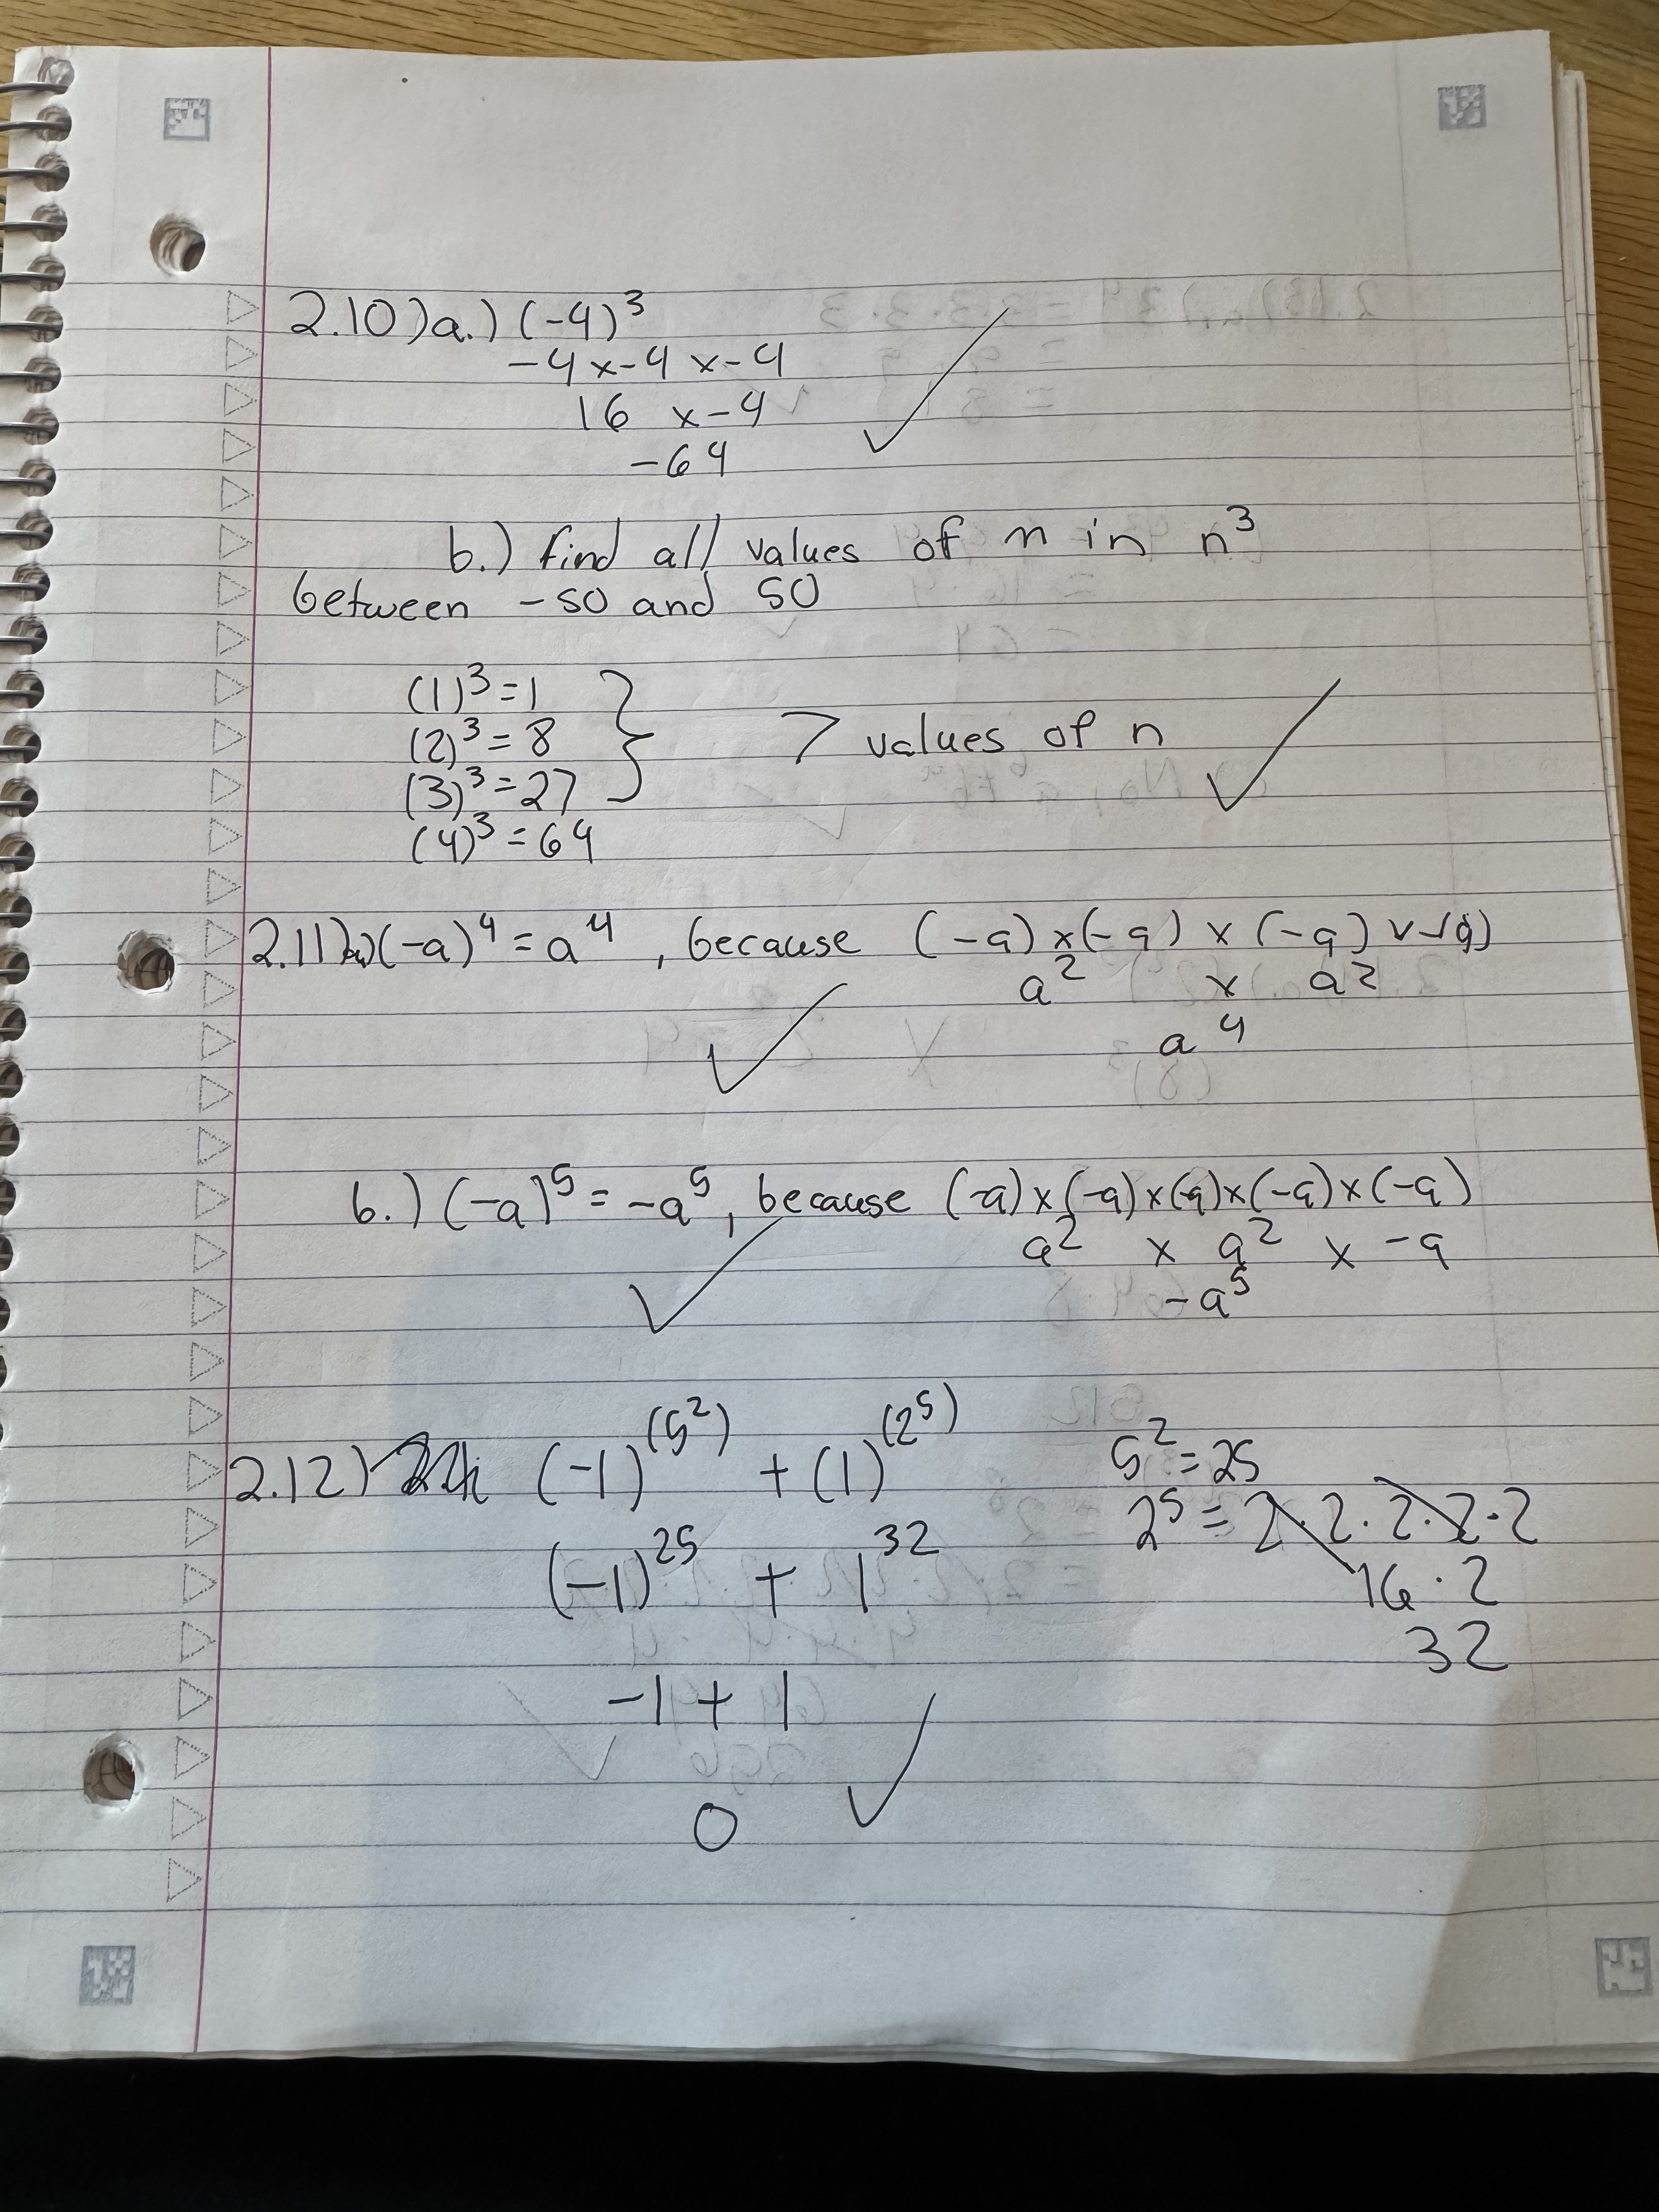 2.10) a.) (-4)³
-4 x -4 x -4
16 x -4
-64
b.) find all values of n in n³
between -50 and 50
(1)³ = 1
(2)³ = 8
(3)³ = 27
(4)³ = 64
7 values of n
2.11) a) (-a)⁴ = a⁴, because (-a) x (-a) x (-a) x -(a)
a² x a²
a⁴
b.) (-a)⁵ = -a⁵, because (-a) x (-a) x (-a) x (-a) x (-a)
a² x a² x -a
-a⁵
2.12) (-1)^(5²) + (1)^(2⁵)
(-1)²⁵ + 1³²
-1 + 1
0
5² = 25
2⁵ = 2·2·2·2·2
16·2
32